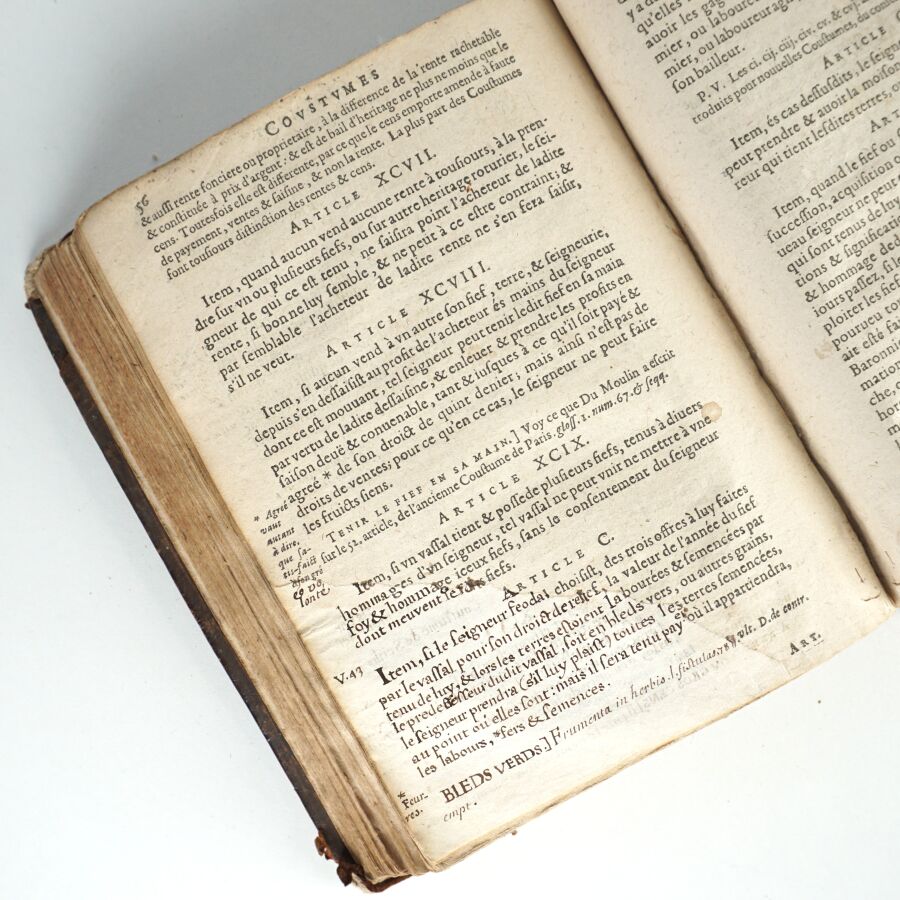 56
COVSTVMES
& aussi rente fonciere ou proprietaire, à la difference de la rente rachetable
& constituée à prix d'argent: & est de bail d'heritage ne plus ne moins que le
cens. Toutesfois elle est differente, par ce que le cens emporte amende à faute
de payement, ventes & saisine, & non la rente. La plus part des Coustumes
font tousiours distinction des rentes & cens.
ARTICLE XCVII.
Item, quand aucun vend aucune rente à tousiours, à la pren-
dre sur vn ou plusieurs fiefs, ou sur autre heritage roturier, le sei-
gneur de qui ce est tenu, ne saisira point l'acheteur de ladite
rente, si bon ne luy semble, & ne peut à ce estre contraint; &
par semblable l'acheteur de ladite rente ne s'en fera saisir,
s'il ne veut.
ARTICLE XCVIII.
Item, si aucun vend à vn autre son fief, terre, & seigneurie,
depuis s'en dessaisist au profit de l'acheteur és mains du seigneur
dont ce est mouuant, tel seigneur peut tenir ledit fief en sa main
par vertu de ladite dessaisine, & enleuer & prendre les profits en
saison deuë & conuenable, tant & iusques à ce qu'il soit payé &
agreé * de son droict de quint denier, mais ainsi n'est pas de
droits de ventes; pour ce qu'en ce cas, le seigneur ne peut faire
les fruicts siens.
* Agreé
vaut
autant
à dire,
que sa-
tis-faict
à son gré
& vo
lonté
TENIR LE FIEF EN SA MAIN.] Voy ce que Du Moulin a escrit
sur le 52. article, de l'ancienne Coustume de Paris. gloss. 1. num. 67. & seqq.
ARTICLE XCIX.
Item, si vn vassal tient & possede plusieurs fiefs, tenus à diuers
hommages d'vn seigneur, tel vassal ne peut vnir ne mettre à vne
foy & hommage iceux fiefs, sans le consentement du seigneur
dont meuuent lesdits fiefs.
ARTICLE C.
V. 43
Item, si le seigneur feodal choisist, des trois offres à luy faites
par le vassal pour son droist de relief, la valeur de l'année du fief
tenu de luy, & lors les terres estoient labourées & semencées par
le predecesseur dudit vassal, soit en bleds vers, ou autres grains,
le seigneur prendra (s'il luy plaist) toutes les terres semencées,
au point où elles sont: mais il sera tenu payer où il appartiendra,
les labours, *fers & semences.
* Feur-
res.
BLEDS VERDS.] Frumenta in herbis. l. fistulas. 78. § vlt. D. de contr.
empt.
ART.
y a de
qu'elles
auoir les gag
mier, ou laboureu
mier, ou laboureur aga
son bailleur.
P. V. Les ci. cij. ciij. civ. cv. & cvj.
troduits pour nouuelles Coustumes, du conse
ARTICLE C
Item, és cas dessusdits, le seigne
peut prendre & auoir la moisson
reur qui tient lesdites terres, ou
ART
Item, quand le fief ou
succession, acquisition o
ueau seigneur ne peut
qui sont tenus de luy
tions & significati
& hommage de
iours passez, si l
ploiter les fief
pourueu to
ait esté fa
Baronni
mation
che, o